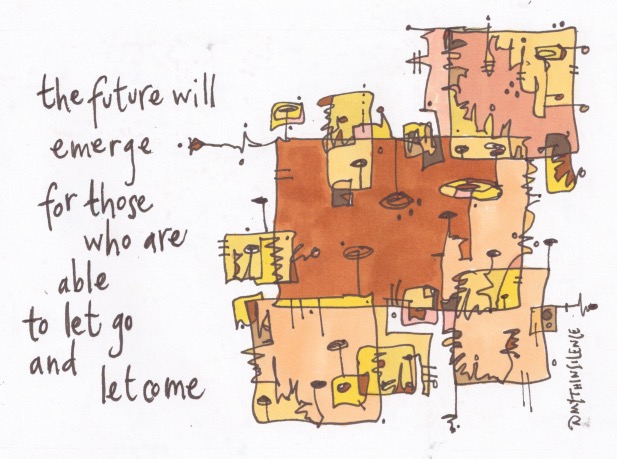 the future will
emerge
for those
who are
able
to let go
and
let come
@MYTHINSILENCE